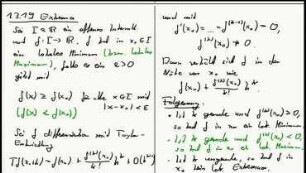 13.19 Extrema
Sei I ⊂ ℝ ein offenes Intervall
und f: I → ℝ. f hat in x₀ ∈ I
ein lokales Minimum (bzw. lokales
Maximum), falls es ein ε > 0
gibt mit
f(x) ≥ f(x₀) für alle x ∈ I mit
|x - x₀| < ε
(f(x) ≤ f(x₀))
Sei f differenzierbar mit Taylor-
Entwicklung
und mit
f'(x₀) = ... = f⁽ᵏ⁻¹⁾(x₀) = 0,
f⁽ᵏ⁾(x₀) ≠ 0.
Dann verhält sich f in der
Nähe von x₀ wie
f(x₀) + f⁽ᵏ⁾(x₀)/k! hᵏ
Folgerung:
gerade und f⁽ᵏ⁾(x₀) > 0,
so hat f in x₀ ein lok. Minimum.
gerade und f⁽ᵏ⁾(x₀) < 0,
so hat f in x₀ ein lok. Maximum.
ungerade, so hat f in
x₀ kein lok. Extremum.